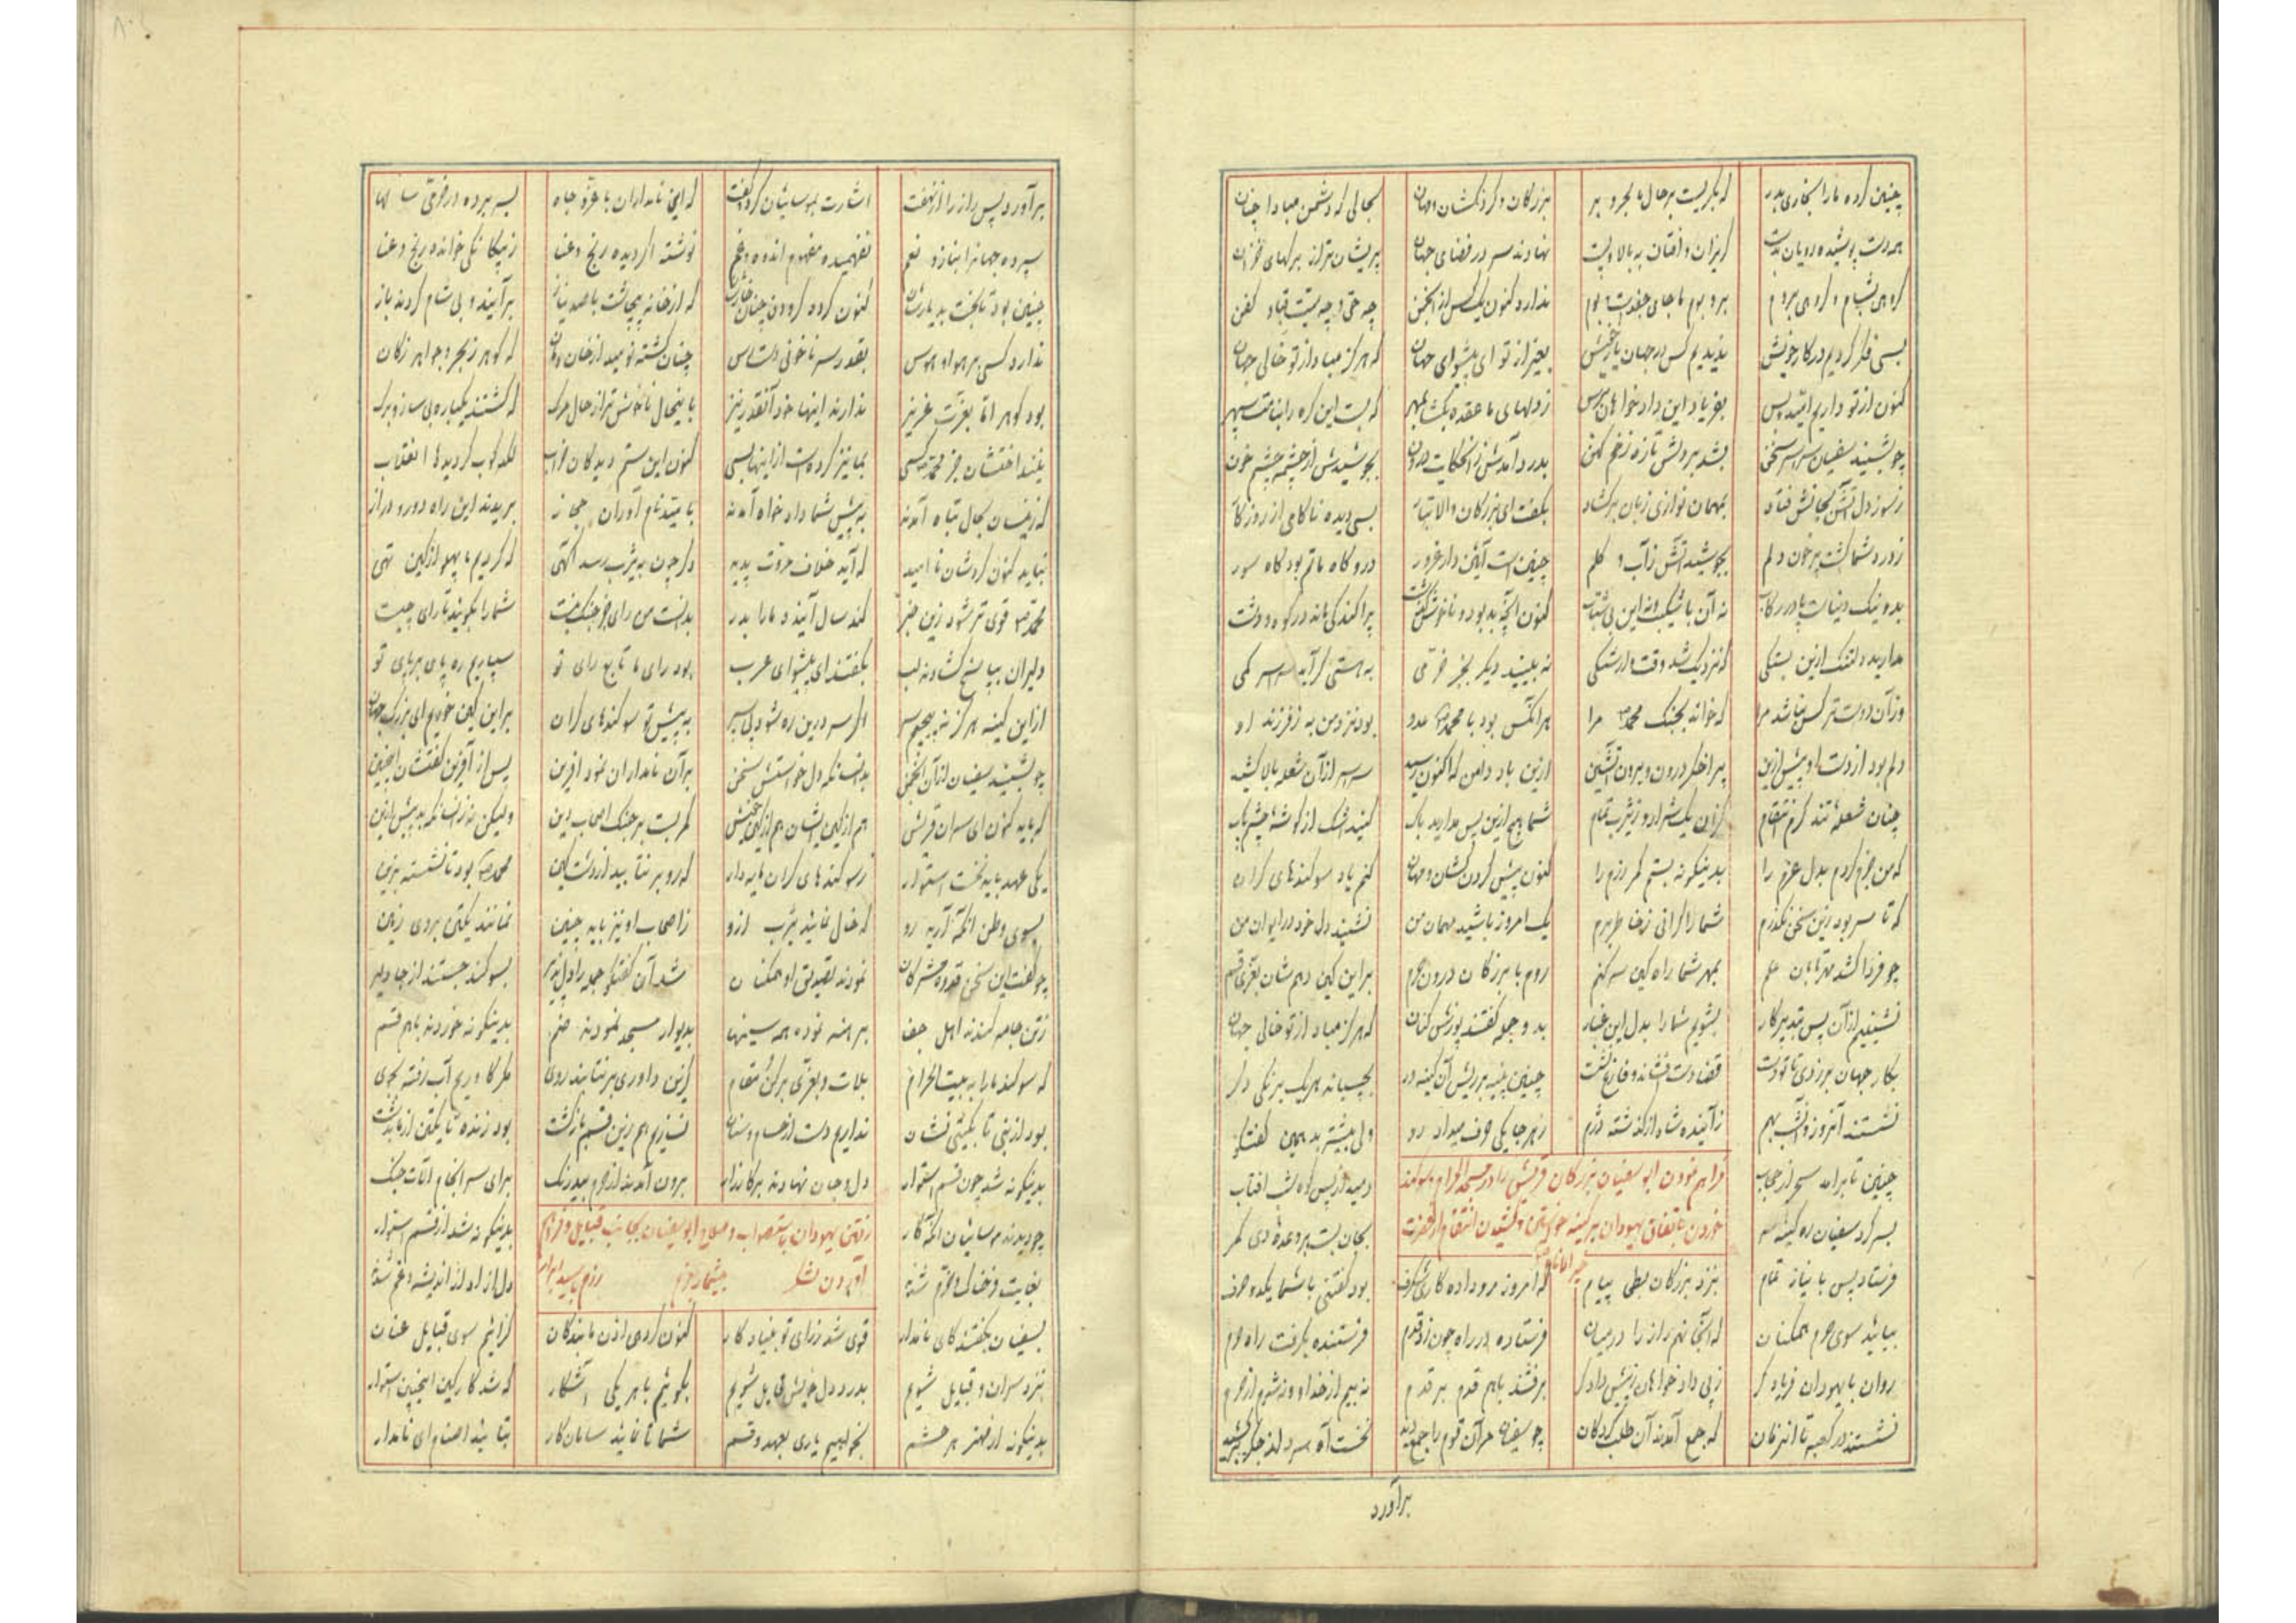 چنین کرده ما را بخاری بدر که بگریست بر حال ما بحر و بر بزرگان و گردنکشان و مهان بحالی که دشمن مبادا چنان
همه دست پوشیده رویان بدست گریزان و افتان به بالا و پست نهادند سر در فضای جهان پریشان تر از برکهای خزان
گروهی بشام و گروهی بروم بر و بوم ما جای جغدست و بوم ندارد کنون یک کس از انجمن چه حی و چه میت قبا و کفن
بسی فکر کردیم در کار خویش ندیدیم کس در جهان یار خویش بغیر از تو ای پیشوای جهان که هرگز مباد از تو خالی جهان
کنون از تو داریم امید بس بفریاد این دادخواهان برس ز دلهای ما عقده بگشا بمهر که بست این گره را سپهر
چو بشنید سفیان سراسر سخن بشد بر دلش تازه زخم کهن بدرد آمدش زان حکایت درون بجوشیدش از چشمه چشم خون
ز سوز دل آتش بجانش فتاد بمهمان نوازی زبان برگشاد بگفت ای بزرگان والا تبار بسی دیده ناکامی از روزگار
ز درد شما گشت پر خون دلم بجوشید آتش ز آب و گلم چنین است آئین دار غرور درو گاه ماتم بود گاه سور
بد و نیک دنیاست پا در رکاب نه آن با شکیب و نه این بی شتاب کنون آنچه بد بود و ناخوش گذشت پراکندگی ماند در کوه و دشت
مدارید دلتنک ازین بستگی که نزدیک شد وقت وارستگی نه بینید دیگر بجز خرمی به هستی گراید سراسر کمی
وز آن دوست تر کس نباشد مرا که خواند بجنک محمد مرا هر آنکس بود با محمد عدو بود نزد من به ز فرزند او
دلم بود از دست او پیش ازین پر اخگر درون و برون آتشین ازین باد دامن که اکنون رسید سراسر از آن شعله بالا کشید
چنان شعله تند گرم انتقام کزان یک شرار و ز یثرب تمام شما هیچ ازین پس مدارید باک کنید اشک از گوشه چشم پاک
که من جزم کردم بدل عزم را بدینگونه بستم کمر رزم را کنون پیش گردنکشان و مهان کنم یاد سوگندهای گران
که تا سر بود زین سخن نگذرم شما را گرانی ز خاطر برم یک امروز باشید مهمان من نشینید دل خود در ایوان من
چو فردا کشد مهر تابان علم بمهر شما راه کین سر کنم روم با بزرگان درون حرم بر این کین دهم شان بعزی قسم
نشینیم از آن پس بتدبیر کار بشویم شما را بدل این غبار بد و جمله گفتند پوزش کنان که هرگز مباد از تو خالی جهان
بکار جهان بر زدی تا تو دست قضا دست افشاند و فارغ نشست چنین پنبه بر ریش آن کینه در بچسباند هر یک برنگی دگر
نشستند آنروز و آن شب بهم ز آینده شاد از گذشته دژم ز هر جا یکی حرف میداد رو ولی بیشتر بد همین گفتگو
چنین تا بر آمد سحر از حجاب دمید از پس کوه شب آفتاب
فراهم نمودن ابو سفیان بزرگان قریش را در مسجد الحرام و سوگند
بسر کرد سفیان ره کینه سر بجان بست بر وعده دی کمر
خوردن باتفاق یهودان بر کینه خواستن و کشیدن انتقام از حضرت خیر الانام
فرستاد پس با نیاز تمام بنزد بزرگان بطحی پیام که امروز مرو داده کاری شگرف بود گفتنی با شما یکدو حرف
بیائید سوی حرم همگنان که آنجا نهم راز را در میان فرستاده در راه چون زد قدم فرستنده بگرفت راه حرم
روان با یهودان فریادگر ز پی دادخواهان ز پیش دادگر برفتند باهم قدم بر قدم نه بیم از خدا و نه شرم از حرم
نشستند در کعبه تا آنزمان که جمع آمدند آن طلب کردگان چو سفیان مر آن قوم را جمع دید نخست آه سرد از جگر بر کشید
برآورد
برآورد پس راز را از نهفت اشارت بموسائیان کرد و گفت که این نامداران با عز و جاه بسر برده در خرمی سالها
سپرده جهانرا بناز و نعم نفهمیده مفهوم اندوه و غم نوشته اگر دیده رنج و عنا ز بیگانگی خوانده رنج و عنا
چنین بود تا بخت بد یارشان کنون کرده گردون چنان خوارشان که از خانه چاشت با صد نیاز برآیند و بی شام گردند باز
ندارد کسی بر هوا و هوس بقدر سر ناخنی دسترس چنان گشته نومید از خان و مان که گوهر ز بحر و جواهر ز کان
بود گوهر اما بعزت عزیز ندارند اینها خود آنقدر نیز باینحال ناخوش تر از حال مرک که گشتند یکباره بی ساز و برک
نیند اختشان جز محمد کسی بما نیز کرده است از اینها بسی کنون این ستم دیدگان خراب لکدکوب گردیدها انقلاب
که زینسان بحال تباه آمدند به پیش شما دادخواه آمدند بامید نام آوران حجاز بریدند این راه دور و دراز
نباید کنون کردشان ناامید که آید خلاف مروت پدید دگر چون به یثرب رسد آگهی که کردیم ما پهلو از کین تهی
محمد قوی تر شود زین خبر کند سال آینده ما را بدر بدانست من رای جز جنک نیست شما را بگوئید تا رای چیست
دلیران بپاسخ گشادند لب بگفتند ای پیشوای عرب بود رای ما تابع رای تو سپاریم ره پای بر پای تو
از این کینه هرگز نه پیچیم سر اگر سر درین ره شود پی سپر به پیش تو سوگندهای گران بر این کین خوریم ای بزرگ جهان
چو بشنید سفیان از آن انجمن بدانسانکه دل خواستش سخن بر آن نامداران نمود آفرین پس از آفرین گفتشان اینچنین
که باید کنون ای سران قریش هم از کین ایشان هم از کین خویش کمر بست بر جنک اصحاب دین ولیکن نه زانسانکه بد پیش ازین
یکی عهد باید نخست استوار ز سوگندهای گران مایه دار که رو بر نتابید از دشت کین محمد بود تا نشسته بزین
بسوی وطن آنگه آرید رو که خالی نمائید یثرب ازو ز اصحاب او نیز باید چنین نمانند یکتن بروی زمین
چو گفت این سخن قدوه مشرکان نمودند تصدیق او همگنان شد آن گفتگو جمله را دلپذیر بسوگند جستند از جا دلیر
ز تن جامه کندند اهل جفا برهنه نموده همه سینها بدیوار مسجد نمودند ضم بدینگونه خوردند باهم قسم
که سوگند ما را به بیت الحرام بلات و بعزی برکن و مقام کزین داوری بر نتابند روی مگر کاوریم آب رفته بجوی
بود از بنی تا بگیتی نشان نداریم دست از حسام و سنان نسازیم هم زین قسم بازگشت بود زنده تا یکتن از ما بدشت
بدینگونه شد چون قسم استوار دل و جان نهادند بر کارزار برون آمدند از حرم بیدرنگ برای سرانجام آلات جنگ
رفتن یهودان باستصواب و صلاح ابو سفیان بجانب قبایل و فراهم
چو دیدند موسائیان آنکه کار بدینگونه شد از قسم استوار
آوردن لشکر بیشمار رزم سید ابرار
بغایت فرحناک و خرم شدند دل آزاد از اندیشه و غم شدند
بسفیان بگفتند کای نامدار قوی شد ز رای تو بنیاد کار کنون گر دهی اذن ما بندگان گرائیم سوی قبایل عنان
بنزد سران و قبایل شویم بدرد دل خویش قایل شویم بگوئیم با هر یکی آشکار که شد کار کین اینچنین استوار
بدینگونه از مهتر هر حشم بخواهیم یاری بعهد و قسم شما تا نمائید سامان کار بتائید اصنام ای نامدار